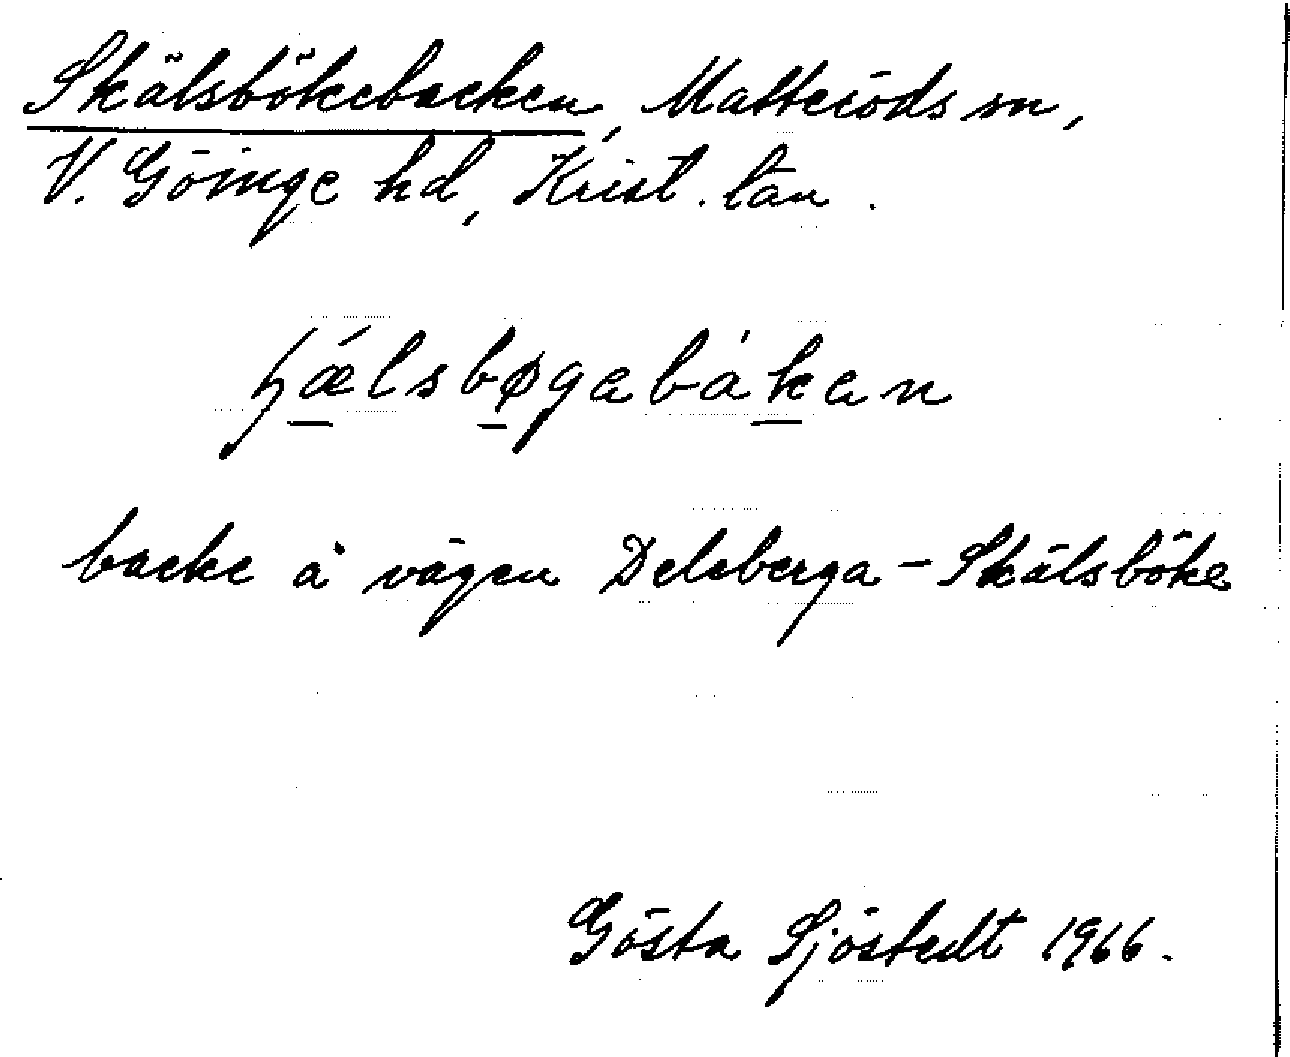 Skälsbökebacken, Matteröds sn,
V. Göinge hd, Krist. län.
hǽlsbøgabákan
backe å vägen Delsberga - Skälsböke
Gösta Sjöstedt 1966.